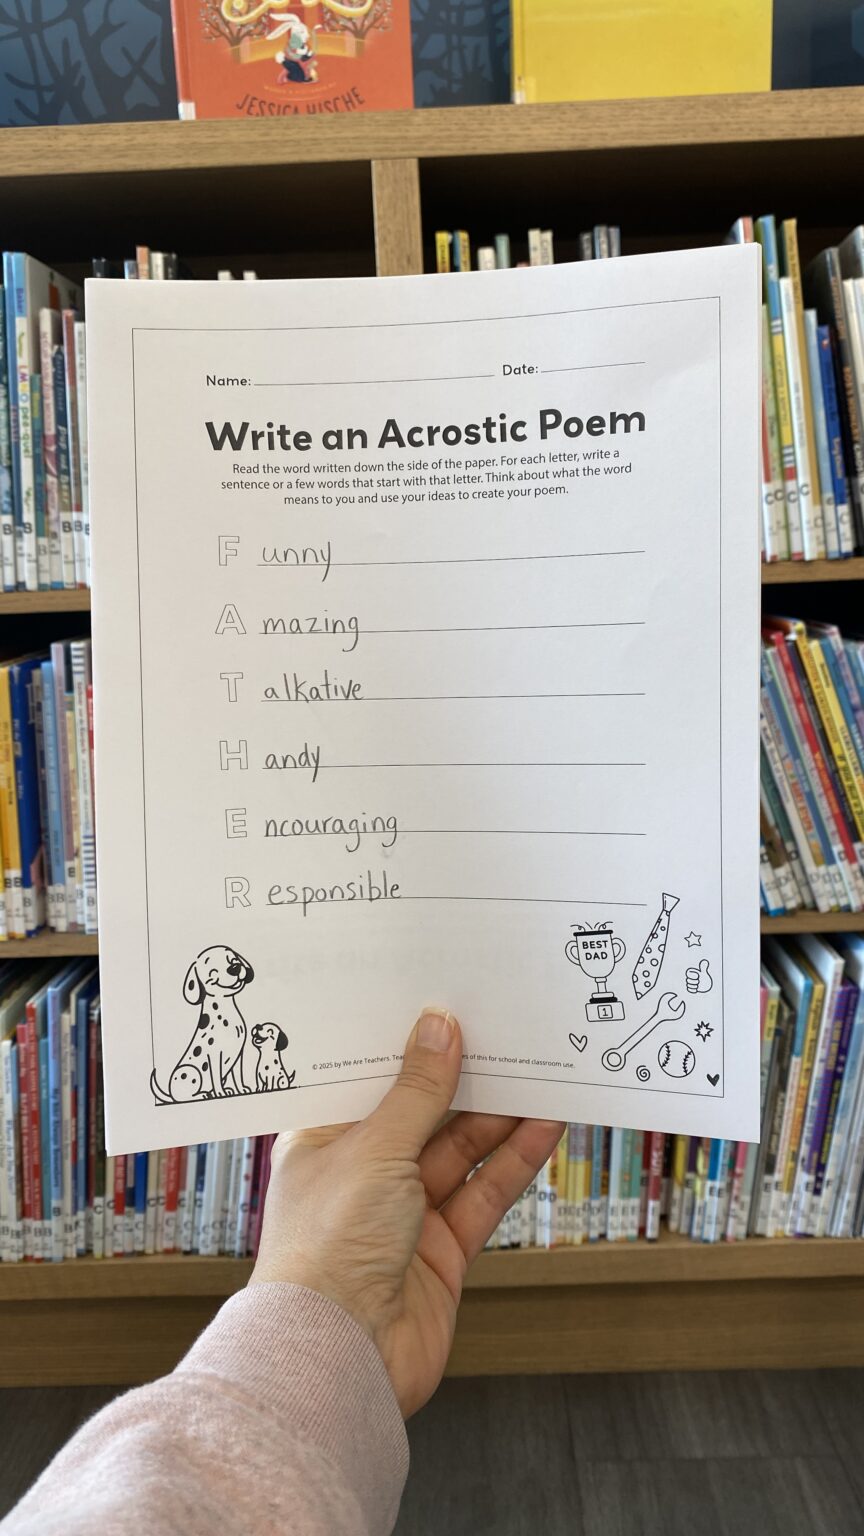 JESSICA HISCHE
Name: Date:
Write an Acrostic Poem
Read the word written down the side of the paper. For each letter, write a
sentence or a few words that start with that letter. Think about what the word
means to you and use your ideas to create your poem.
F unny
A mazing
T alkative
H andy
E ncouraging
R esponsible
BEST
DAD
1
© 2025 by We Are Teachers. of this for school and classroom use.